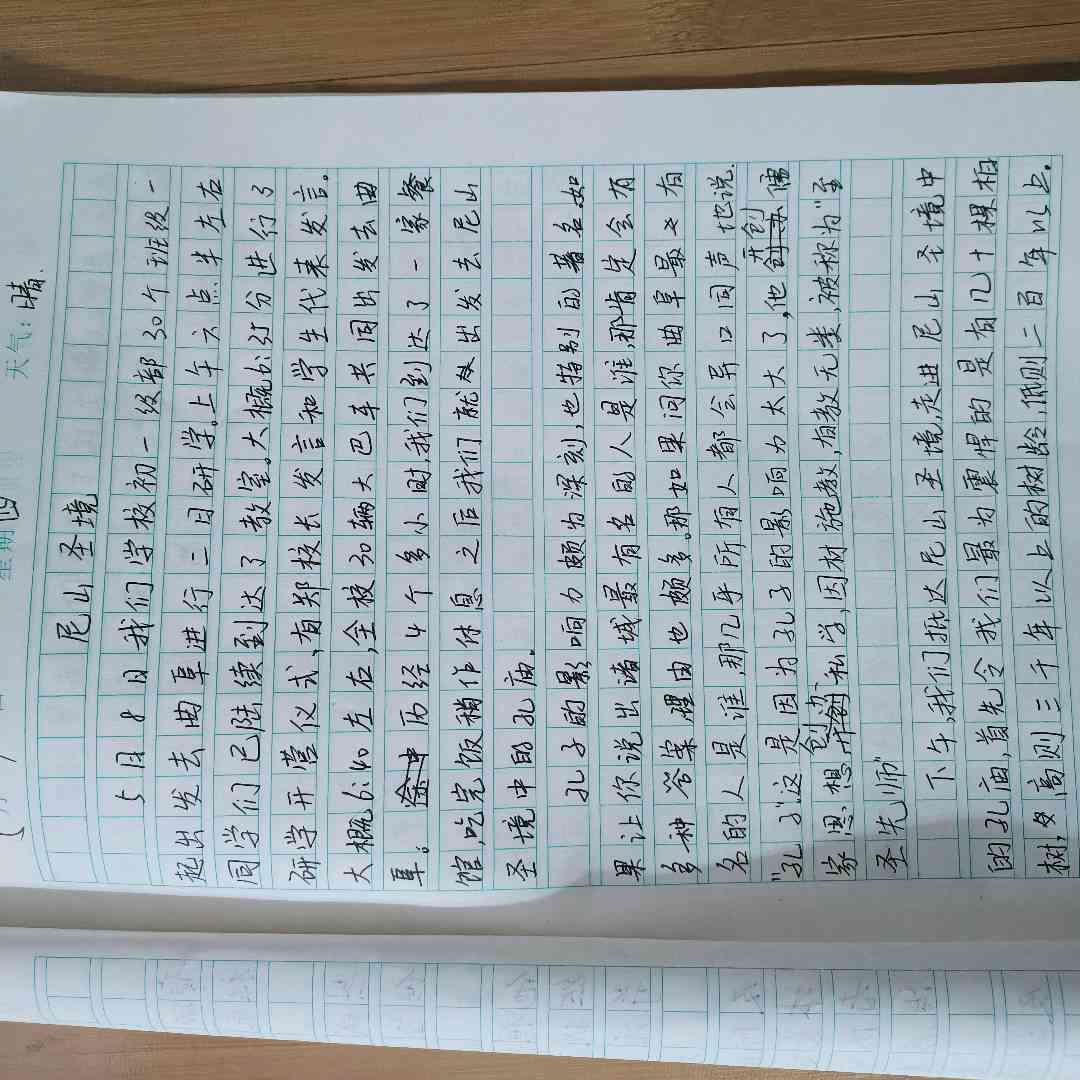 星期四 天气：晴.
尼山圣境
5月8日我们学校初一级部30个班级一
起出发去曲阜进行二日研学。上午六点半左右
同学们已陆续到达了教室。大概6:35分进行了
研学开营仪式,有郑校长发言和学生代表发言。
大概6:40左右,全校30辆大巴车共同出发去曲
阜。历经4个多小时,我们到达了一家餐
馆,吃完饭稍作休息之后我们就出发去尼山
圣境中的孔庙.
孔子的影响力颇为深刻,也特别的著名如
果让你说出诸城最有名的人是谁,那肯定会有
多种答案理由也颇多。那如果问你曲阜最有
名的人是谁,那几乎所有人都会异口同声地说.
"孔子"这是因为孔子的影响力太大了,他开创儒
家思想,创办私学,因材施教,有教无类,被称为"至
圣先师"
下午,我们抵达尼山圣境,走进尼山圣境中
的孔庙,首先令我们最为震悍的是有几十棵柏
树,高则三千年以上的树龄,低则二百年以上.